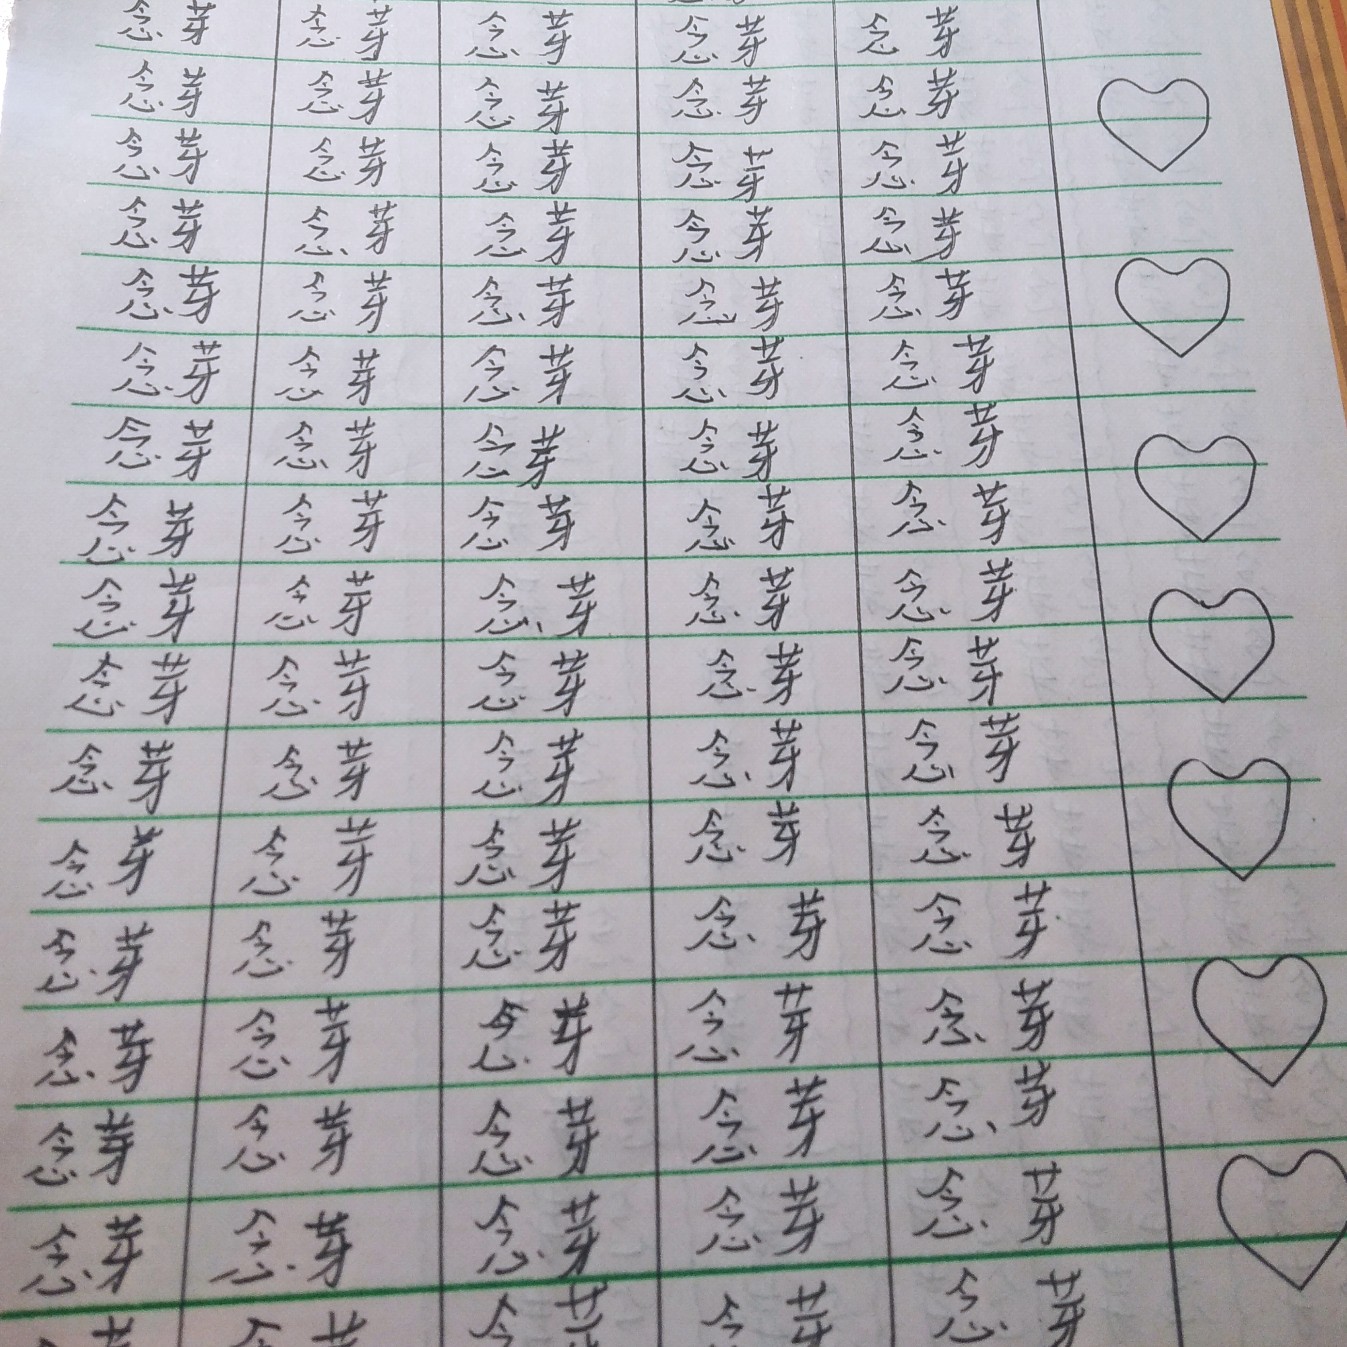 念芽 念芽 念芽 念芽 念芽
念芽 念芽 念芽 念芽 念芽
念芽 念芽 念芽 念芽 念芽
念芽 念芽 念芽 念芽 念芽
念芽 念芽 念芽 念芽 念芽
念芽 念芽 念芽 念芽 念芽
念芽 念芽 念芽 念芽 念芽
念芽 念芽 念芽 念芽 念芽
念芽 念芽 念芽 念芽 念芽
念芽 念芽 念芽 念芽 念芽
念芽 念芽 念芽 念芽 念芽
念芽 念芽 念芽 念芽 念芽
念芽 念芽 念芽 念芽 念芽
念芽 念芽 念芽 念芽 念芽
念芽 念芽 念芽 念芽 念芽
念芽 念芽 念芽 念芽 念芽
念芽